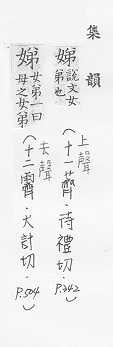 集韻
娣 說文女弟也 (十一薺·待禮切·P.342) 上聲
娣 女弟一曰母之女弟 (十二霽·大計切·P.504) 去聲